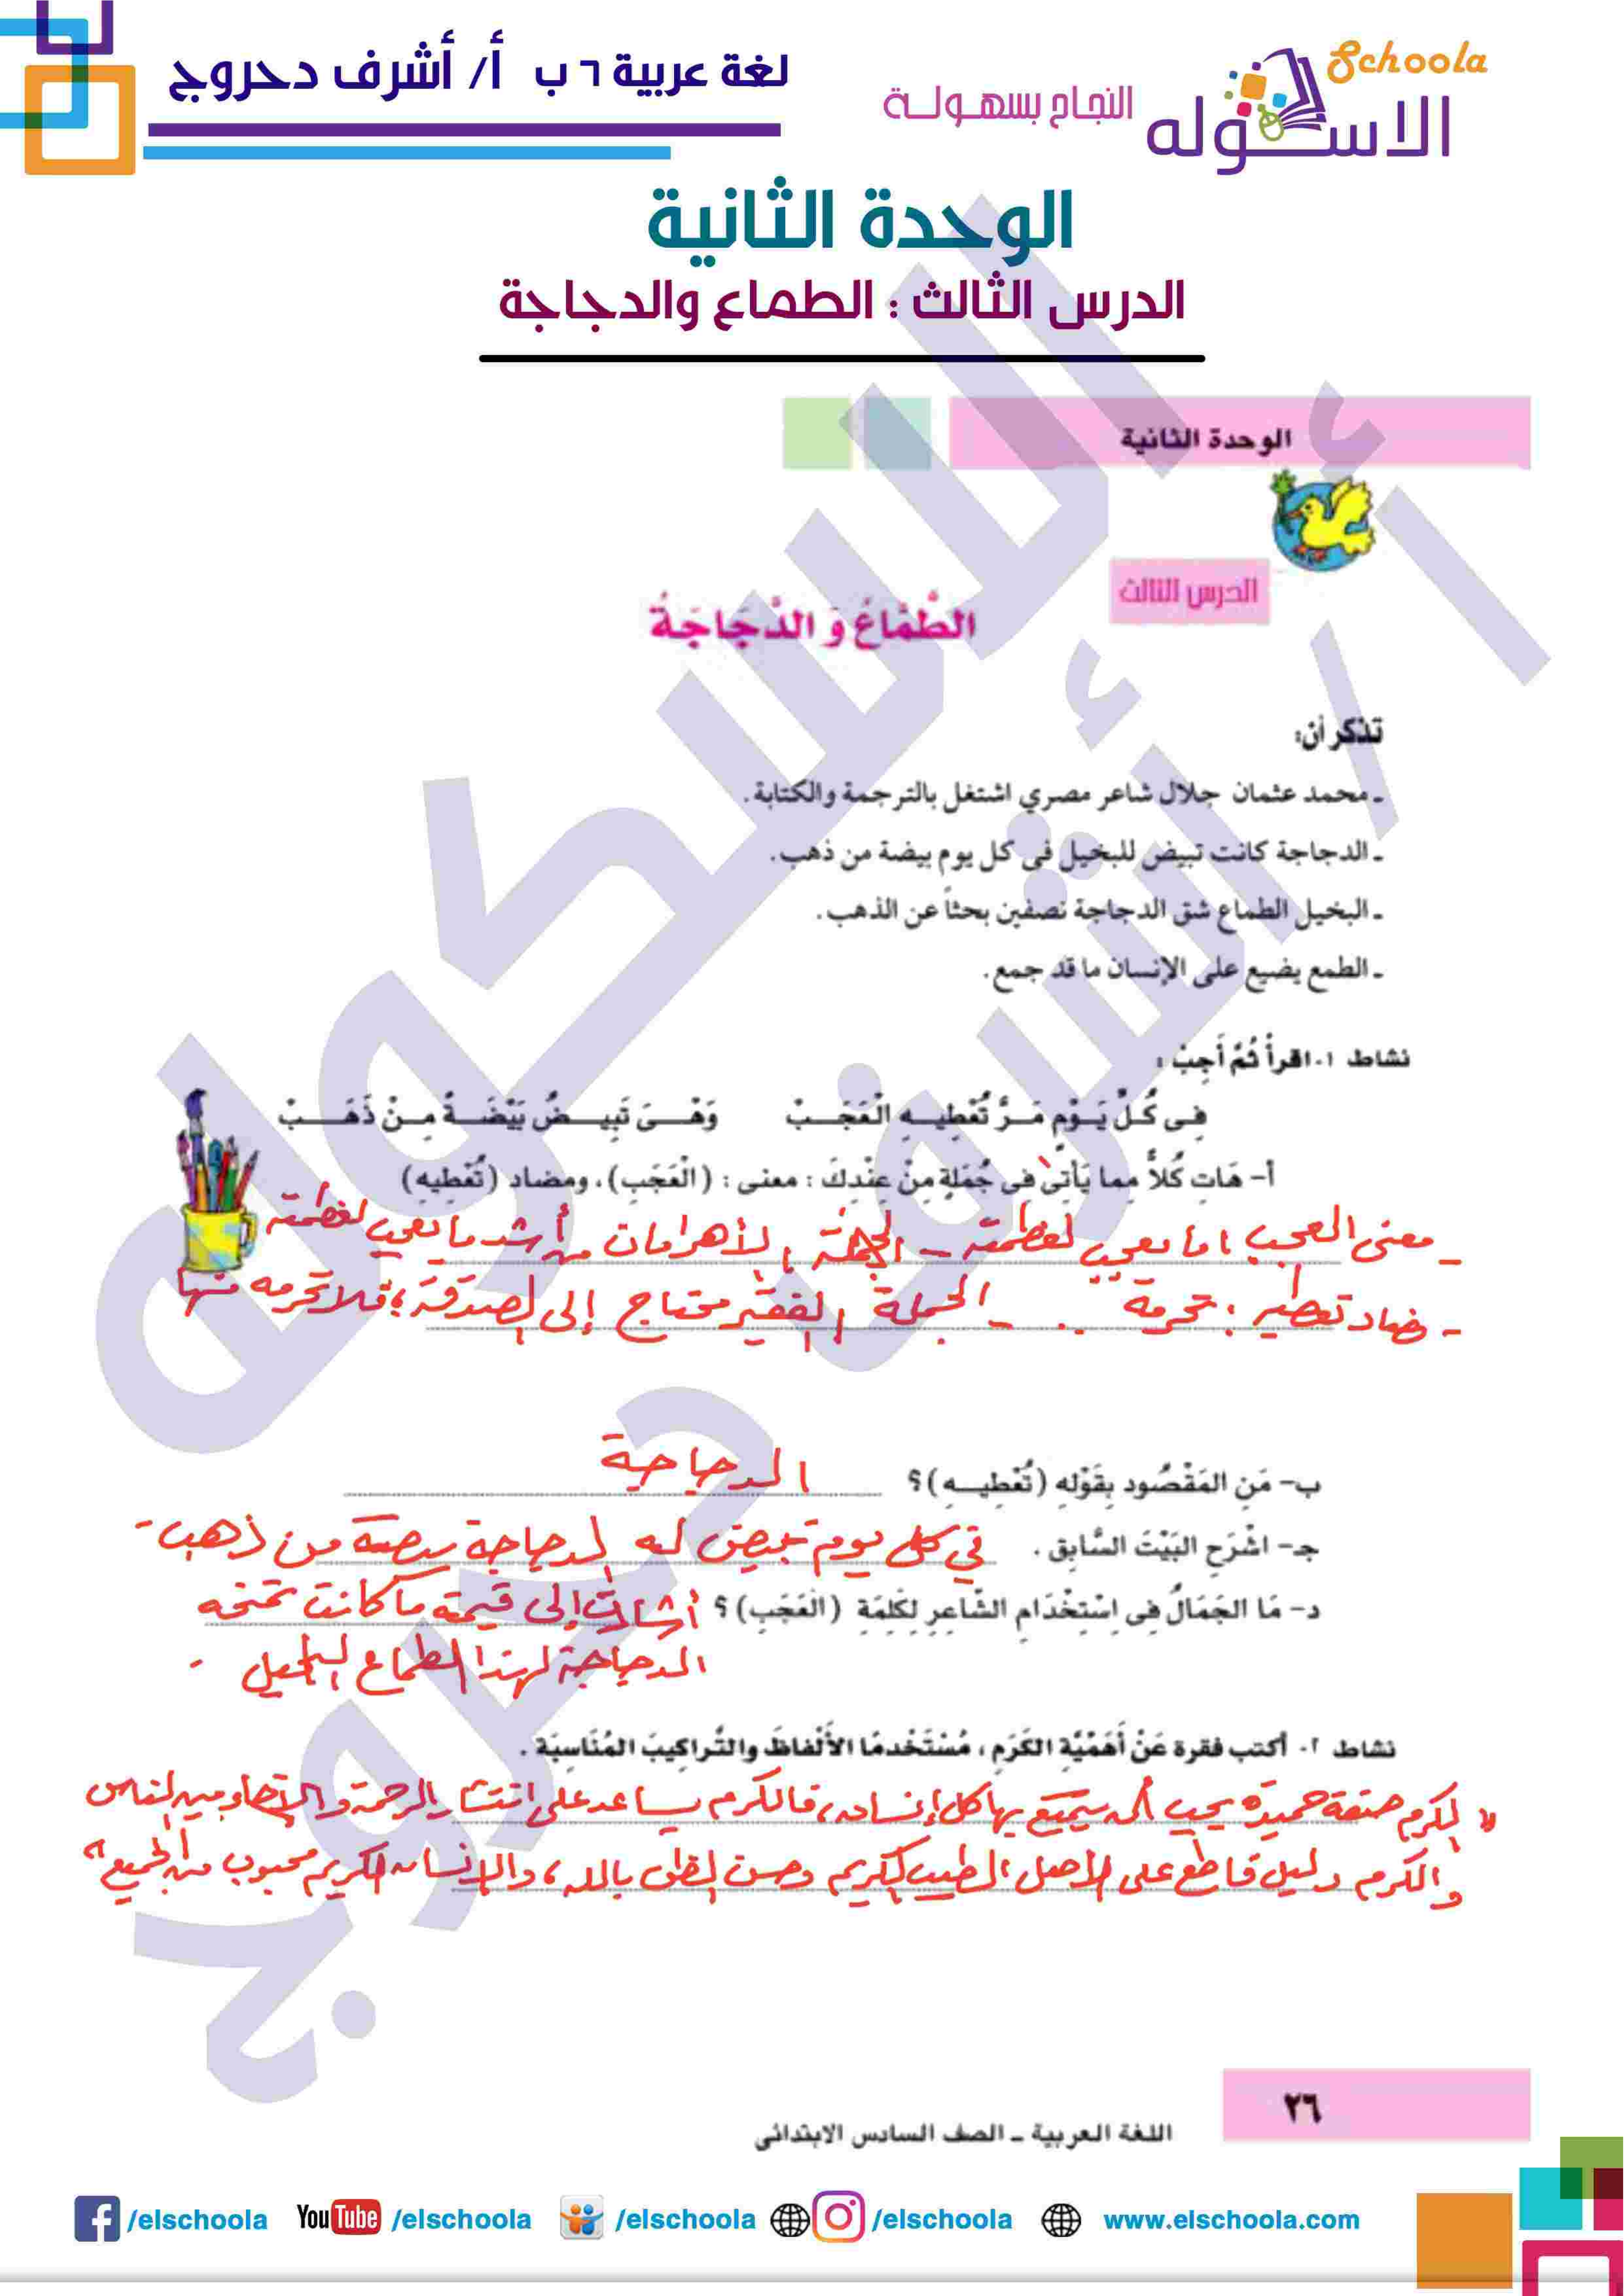 لغة عربية ٦ ب أ/ أشرف دحروج
Schoola
الاسكوله
النجاح بسهولة
الوحدة الثانية
الدرس الثالث : الطماع والدجاجة
الوحدة الثانية
الدرس الثالث
الطَّمَّاعُ وَ الدَّجَاجَةُ
تذكر أن:
ـ محمد عثمان جلال شاعر مصري اشتغل بالترجمة والكتابة.
ـ الدجاجة كانت تبيض للبخيل فى كل يوم بيضة من ذهب.
ـ البخيل الطماع شق الدجاجة نصفين بحثاً عن الذهب.
ـ الطمع يضيع على الإنسان ما قد جمع.
نشاط ١- اقرأْ ثُمَّ أَجِبْ :
فِى كُلِّ يَـوْمٍ مَـرَّ تُعْطِيـهِ الْعَجَـبْ وَهْـىَ تَبِيـضُ بَيْضَـةً مِـنْ ذَهَـبْ
أ- هَاتِ كُلاًّ مِما يَأْتِى فِى جُمْلَةٍ مِنْ عِنْدِكَ : معنى : (الْعَجَبِ) ، ومضاد (تُعْطِيهِ)
- معنى العجب : ما يعجب لعظمته - الجملة : الأهرامات من أشد ما يعجب لعظمته
- مضاد تعطيه : تحرمه - الجملة : الفقير محتاج إلى الصدقة ؛ فلا تحرمه منها
ب- مَنِ المَقْصُود بِقَوْلِهِ (تُعْطِيـهِ)؟ الدجاجة
جـ- اشْرَحِ البَيْتَ السَّابِق . في كل يوم تبيض له الدجاجة بيضة من ذهب -
د- مَا الجَمَالُ فِى اسْتِخْدَامِ الشَّاعِرِ لِكَلِمَةِ (الْعَجَبِ)؟ أشارت إلى قيمة ما كانت تمنحه
الدجاجة لهذا الطماع البخيل -
نشاط ٢- أكتب فقرة عَنْ أَهَمِّيَّةِ الكَرَمِ ، مُسْتَخْدِمًا الأَلْفاظَ والتَّراكِيبَ المُنَاسِبَة .
" الكرم صفة حميدة يجب أن يتمتع بها كل إنسان ، فالكرم يساعد على انتشار الرحمة و بين الناس
والكرم دليل قاطع على الأصل الطيب الكريم وحسن الظن بالله ، والإنسان الكريم محبوب من الجميع "
٢٦
اللغة العربية ـ الصف السادس الابتدائى
/elschoola YouTube /elschoola /elschoola /elschoola www.elschoola.com
الاسكوله
أ / أشرف دحروج